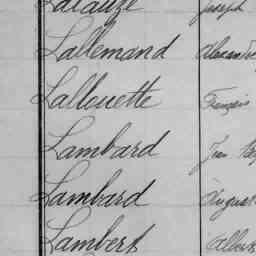 Lallemand
Lallouette François
Lambard Jean
Lambard August
Lambert Albert